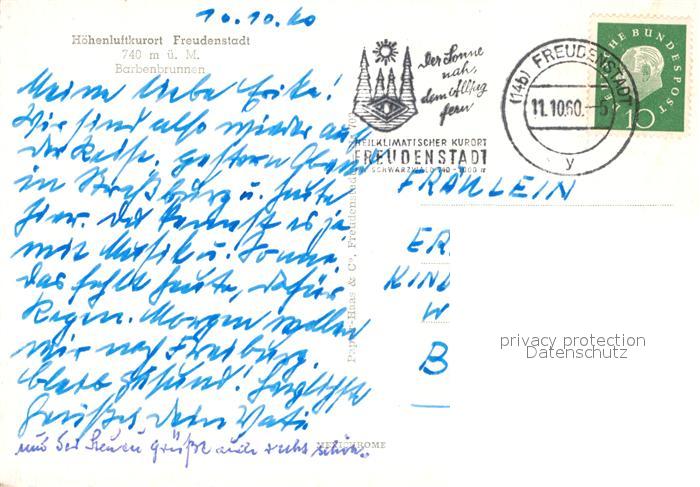 10.10.60
Höhenluftkurort Freudenstadt
740 m ü. M.
Barbenbrunnen
Meine liebe Erika!
Wir sind also wieder auf
der Reise. Gestern Abend
in Straßburg u. heute
hier. Du kennst es ja
mit Musik u. Sonne
das fehlt heute, dafür
Regen. Morgen wollen
wir nach Freiburg.
Bleib gesund! Herzlichste
Grüße, Dein Vati.
und bei grüßt auch recht schön.
Der Sonne
nah,
dem Alltag
fern
HEILKLIMATISCHER KURORT
FREUDENSTADT
SCHWARZWALD 740-1000 m
(14b) FREUDENSTADT
11.10.60.-5
y
DEUTSCHE BUNDESPOST
10
FRÄULEIN
ER
KIND
W
B
privacy protection
Datenschutz
Haas & Co, Freudenstadt
METZCHROME